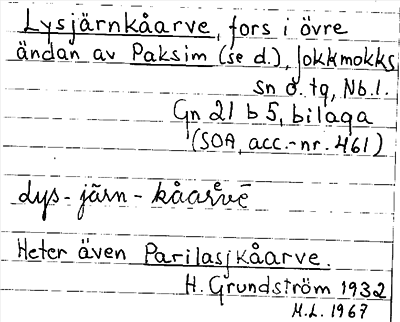 Lysjärnkåarve, fors i övre
ändan av Paksim (se d.), Jokkmokks
sn o. tg, Nb.l.
Gn 21 b 5, bilaga
(SOA, acc.-nr. 461)
lys - järn - kåarvē
Heter även Parilasjkåarve.
H. Grundström 1932
M.L. 1967